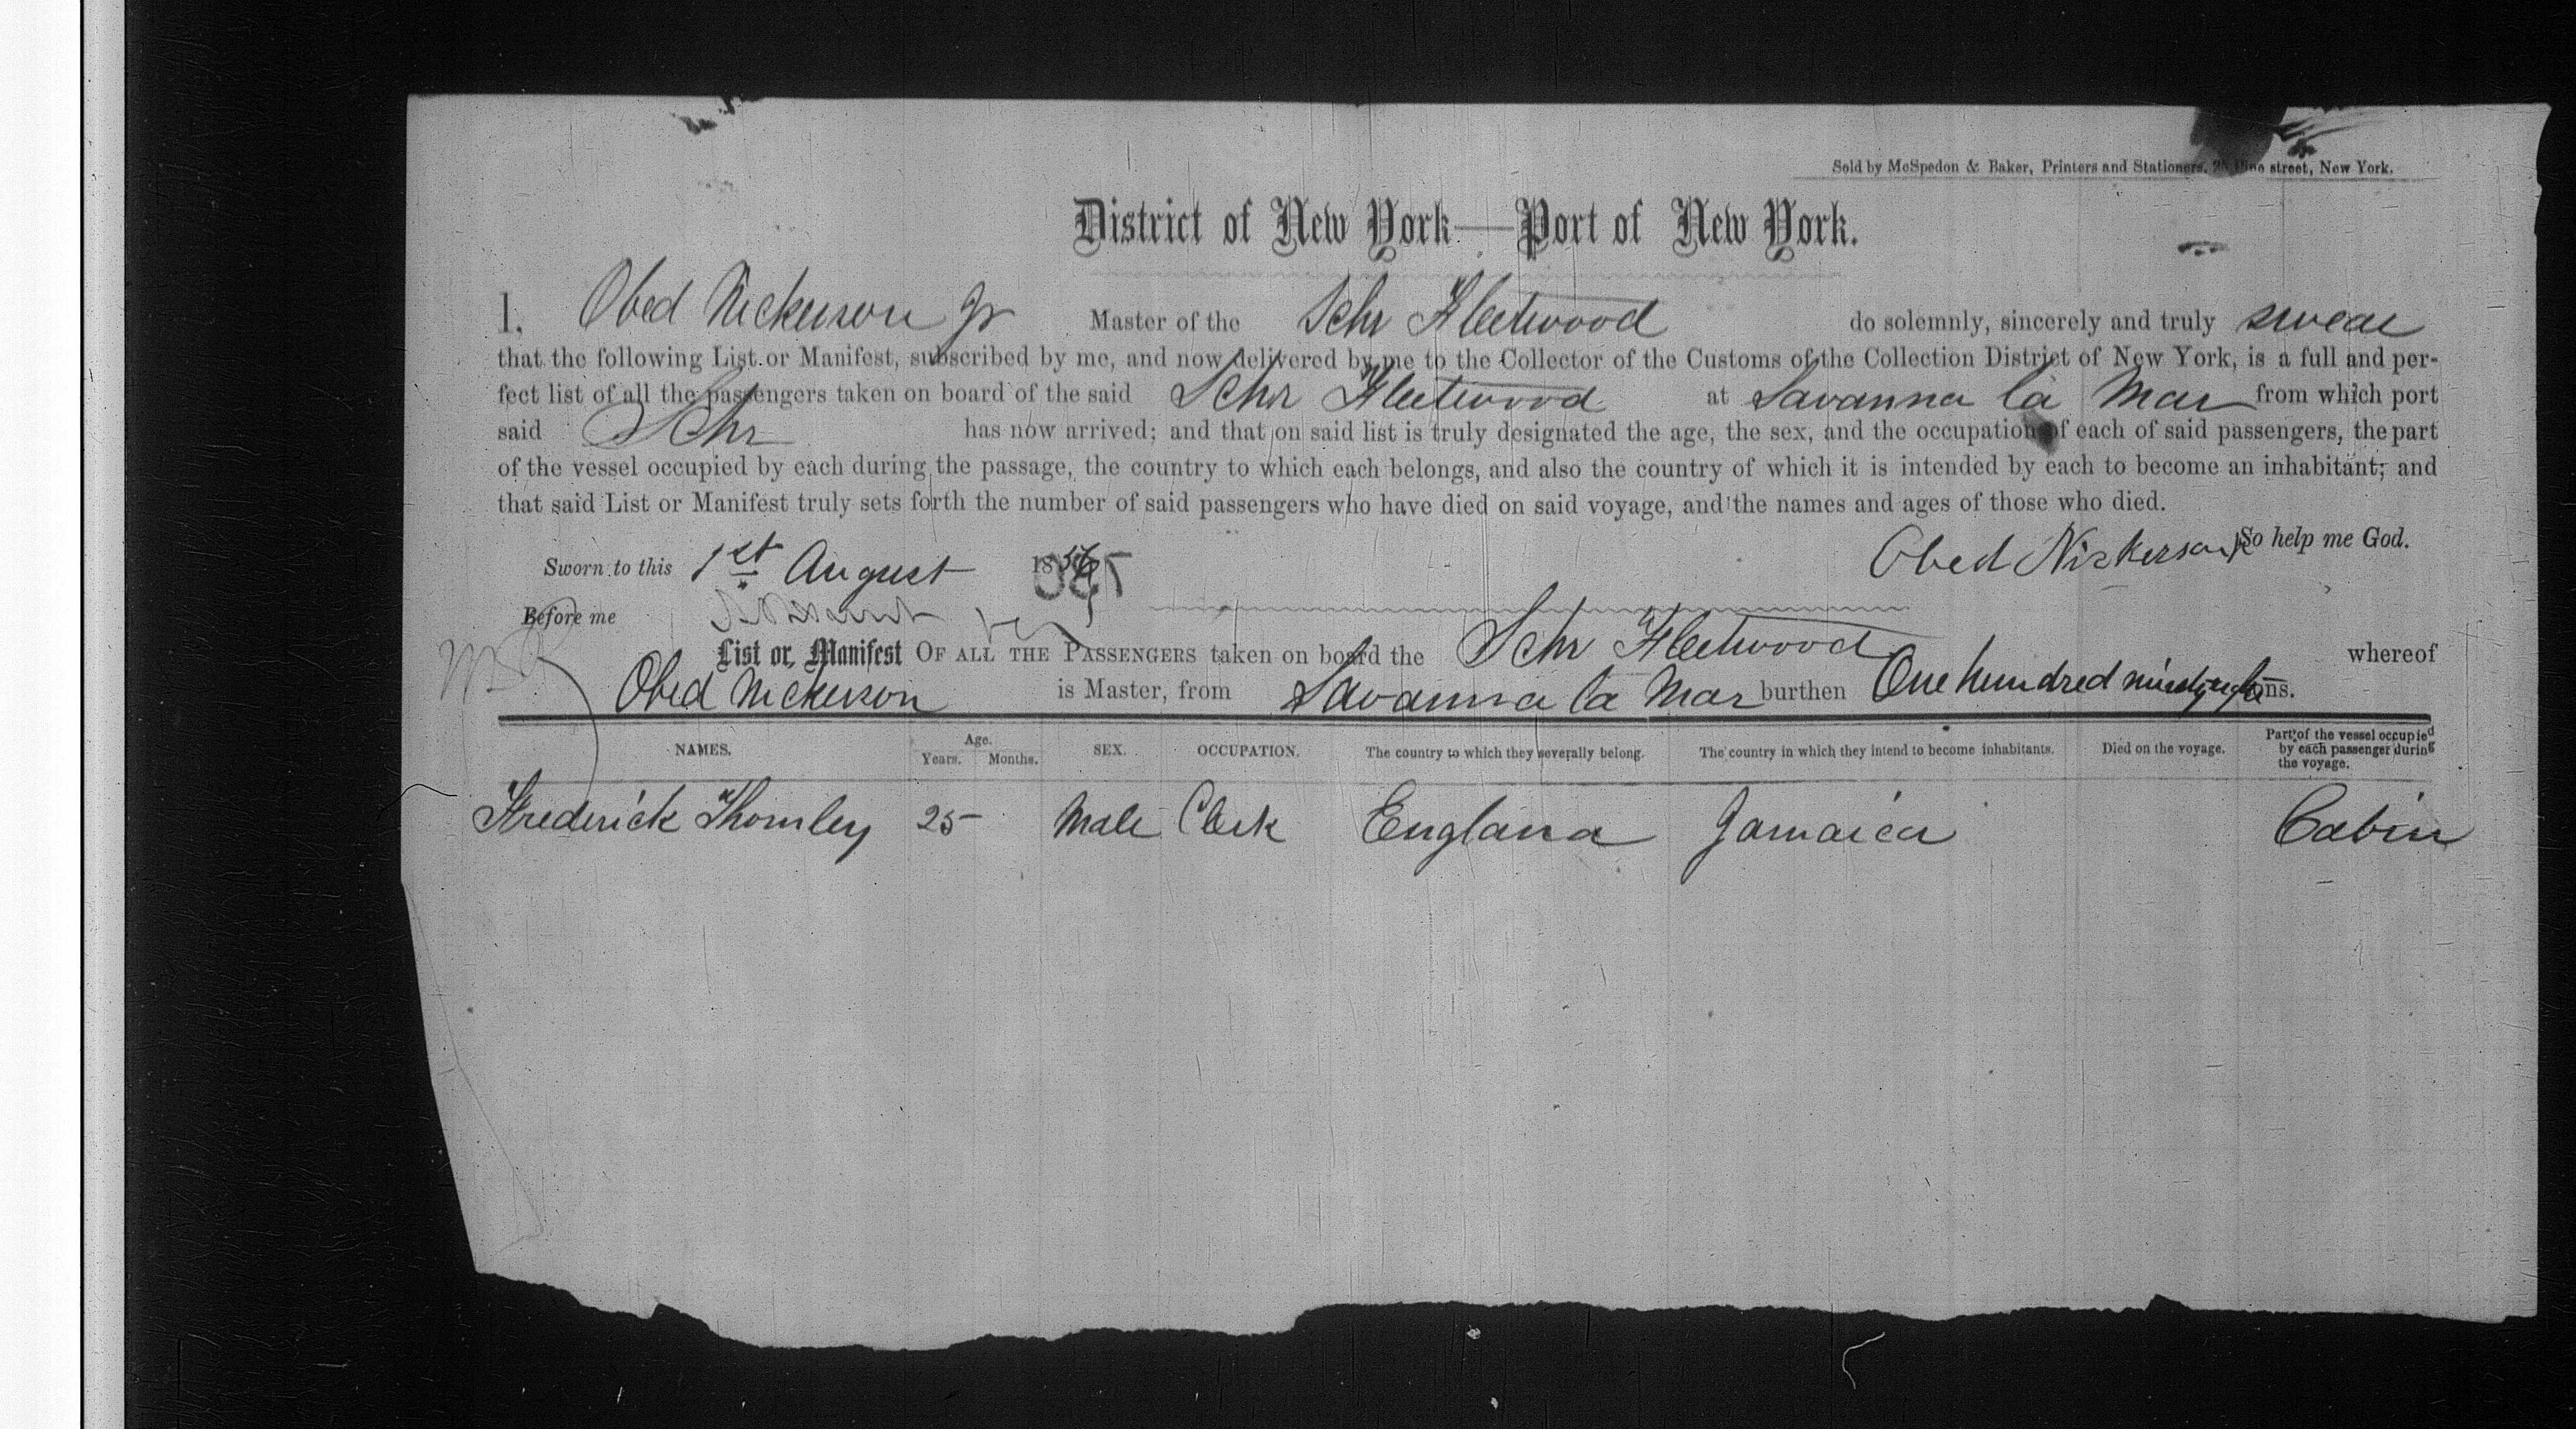 Sold by McSpedon & Baker, Printers and Stationers, street, New York.
District of New York—Port of New York.
I, Obed Nickerson Jr Master of the Schr Fleetwood do solemnly, sincerely and truly swear
that the following List or Manifest, subscribed by me, and now delivered by me to the Collector of the Customs of the Collection District of New York, is a full and per-
fect list of all the passengers taken on board of the said Schr Fleetwood at Savanna la Mar from which port
said Schr has now arrived; and that on said list is truly designated the age, the sex, and the occupation of each of said passengers, the part
of the vessel occupied by each during the passage, the country to which each belongs, and also the country of which it is intended by each to become an inhabitant; and
that said List or Manifest truly sets forth the number of said passengers who have died on said voyage, and the names and ages of those who died.
So help me God.
Sworn to this 1st August 1856 Obed Nickerson Jr
Before me
List or Manifest OF ALL THE PASSENGERS taken on board the Schr Fleetwood whereof
Obed Nickerson is Master, from Savanna la Mar burthen One hundred tons.
NAMES. Age. Years. Months. SEX. OCCUPATION. The country to which they severally belong. The country in which they intend to become inhabitants. Died on the voyage. Part of the vessel occupied by each passenger during the voyage.
Frederick Thornley 25 Male Clerk England Jamaica Cabin